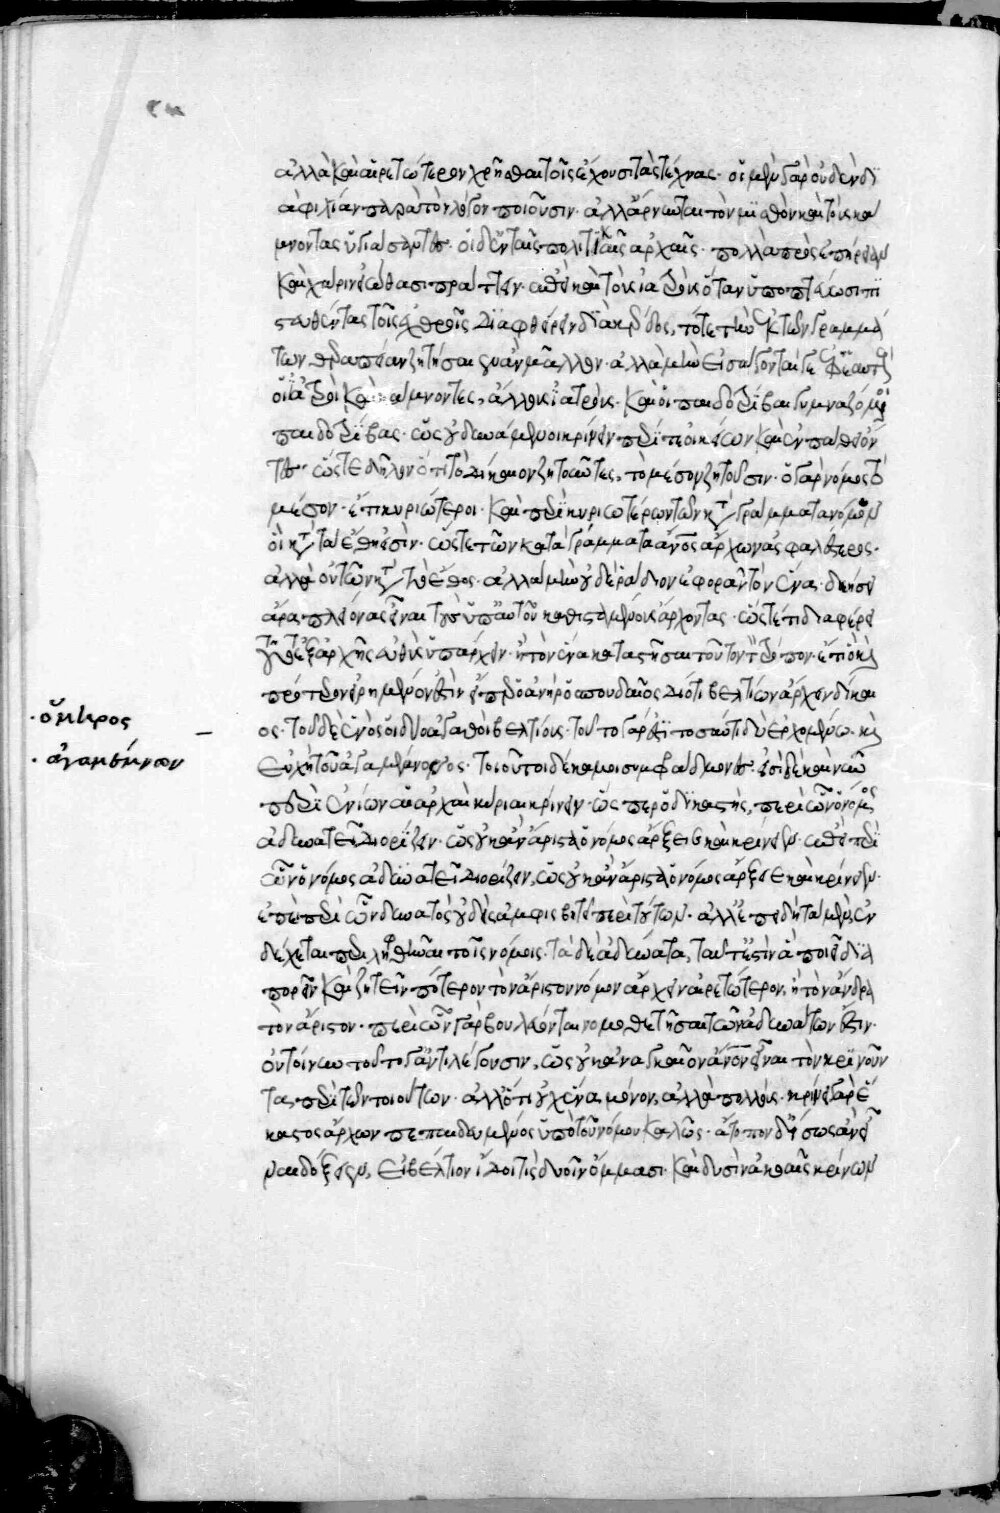 ἀλλὰ καὶ αἱρετώτερον χρῆσθαι τοῖς ἔχουσι τὰς τέχνας· οἱ μὲν γὰρ οὐδὲν δι
ὰ φιλίαν παρὰ τὸν λόγον ποιοῦσιν· ἀλλ' ἄρνωνται τὸν μισθὸν καὶ τοὺς κα
μνοντας ὑγιάσαντες· οἱ δ' ἐν ταῖς πολιτικαῖς ἀρχαῖς· πολλὰ πρὸς ἐπήρειαν
καὶ χάριν εἰώθασι πράττειν· ἀεὶ καὶ τοὺς ἰατροὺς ὅταν ὑποπτεύωσι πι
στευθέντας τοῖς ἐχθροῖς διαφθείρειν διὰ κέρδος, τότε τὴν ἐκ τῶν γραμμά
των θεραπείαν ζητήσαιεν ἂν μᾶλλον· ἀλλὰ μὴν εἰσάγονταί γε ἐφ' ἑαυτοὺς
οἱ ἰατροὶ κάμνοντες, ἄλλους ἰατρούς· καὶ οἱ παιδοτρίβαι γυμναζόμενοι
παιδοτρίβας· ὡς οὐ δυνάμενοι κρίνειν περί τε οἰκείων καὶ ἐν πάθει ὄν
τες· ὥστε δῆλον ὅτι τὸ δίκαιον ζητοῦντες, τὸ μέσον ζητοῦσιν· ὁ γὰρ νόμος τὸ
μέσον· ἔτι κυριώτεροι· καὶ περὶ κυριωτέρων τῶν κατὰ γράμματα νόμων
οἱ κατὰ τὰ ἔθη εἰσίν· ὥστε τῶν κατὰ γράμματα ἄνος ἄρχων ἀσφαλέστερος·
ἀλλ' οὐ τῶν κατὰ τὸ ἔθος· ἀλλὰ μὴν οὐδὲ ῥᾴδιον ἐφορᾶν τὸν ἕνα· δεήσει
ἄρα πλείονας εἶναι τοὺς ὑπ' αὐτοῦ καθισταμένους ἄρχοντας· ὥστε τί διαφέρει
τοῦτο ἐξ ἀρχῆς εὐθὺς ὑπάρχειν· ἢ τὸν ἕνα καταστῆσαι τοῦτον τὸν τρόπον· ἔτι ὃ καὶ
πρότερον εἰρημένον ἐστὶν εἴπερ ὁ ἀνὴρ ὁ σπουδαῖος διότι βελτίων ἄρχειν δίκαι
ος· τοῦ δὲ ἑνὸς οἱ δύο ἀγαθοὶ βελτίους· τοῦτο γάρ ἐστι τὸ σύν τε δύ' ἐρχομένω· καὶ
εὐχὴ τοῦ ἀγαμέμνονος· τοιοῦτοι δέκα μοι συμφράδμονες· εἰσὶ δὲ καὶ νῦν
περὶ ἐνίων αἱ ἀρχαὶ κύριαι κρίνειν· ὥσπερ ὁ δικαστής, περὶ ὧν ὁ νόμος
ἀδυνατεῖ διορίζειν· ὡς οὐκ ἂν ἄριστα ὁ νόμος ἄρξειε καὶ κρίνειεν· ἀλλ' ἐπεὶ περὶ
ὧν ὁ νόμος ἀδυνατεῖ διορίζειν, ὡς οὐκ ἂν ἄριστα ὁ νόμος ἄρξειε καὶ κρίνειεν·
ἐπεὶ περὶ ὧν δυνατὸς οὐδεὶς ἀμφισβητεῖ περὶ τούτων· ἀλλ' ἐπειδὴ τὰ μὲν ἐν
δέχεται περιληφθῆναι τοῖς νόμοις· τὰ δὲ ἀδύνατα, ταῦτ' ἐστὶν ἃ ποιεῖ δια
πορεῖν καὶ ζητεῖν πότερον τὸν ἄριστον νόμον ἄρχειν αἱρετώτερον, ἢ τὸν ἄνδρα
τὸν ἄριστον· περὶ ὧν γὰρ βουλεύονται νομοθετῆσαι τῶν ἀδυνάτων ἐστίν·
οὐ τοίνυν τοῦτό γ' ἀντιλέγουσιν, ὡς οὐκ ἀναγκαῖον ἄνον εἶναι τὸν κρινοῦν
τα, περὶ τῶν τοιούτων· ἀλλ' ὅτι οὐχ ἕνα μόνον, ἀλλὰ πολλούς· κρίνει γὰρ ἕ
καστος ἄρχων πεπαιδευμένος ὑπὸ τοῦ νόμου καλῶς· ἄτοπον δ' ἴσως ἂν εἶ
ναι δόξειεν, εἰ βέλτιον ἴδοι τις δυοῖν ὄμμασι καὶ δυσὶν ἀκοαῖς κρίνων
·ὅμηρος
·ἀγαμέμνων